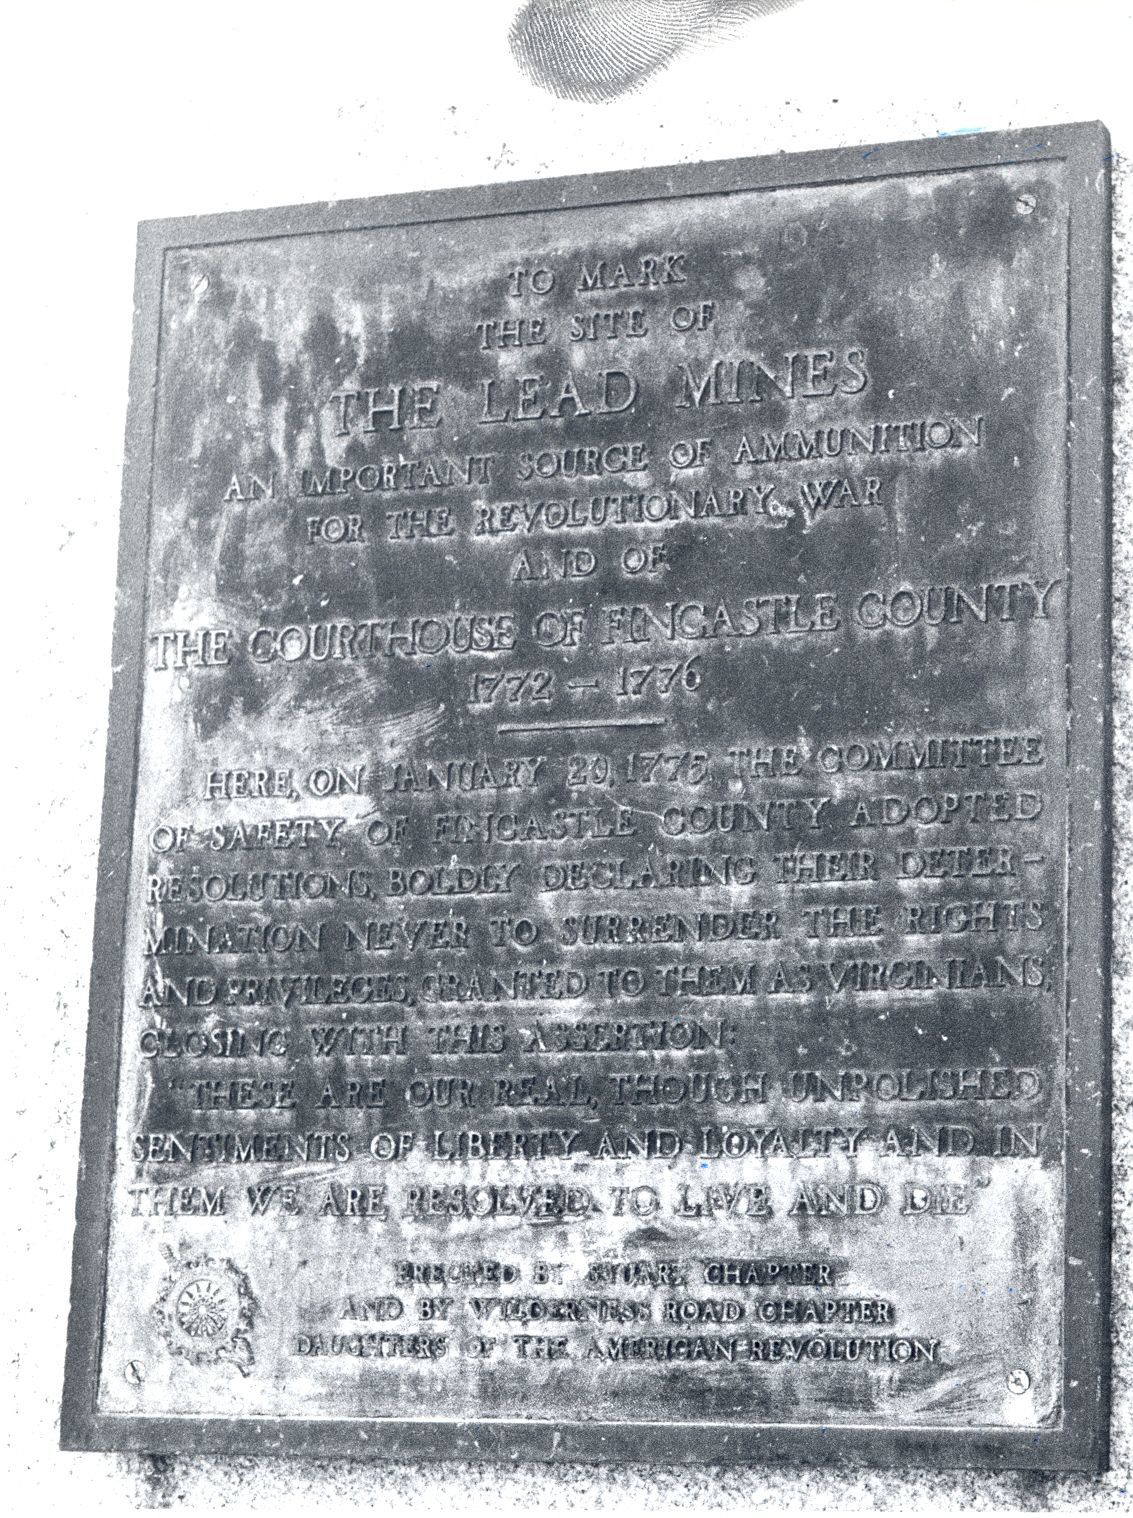 TO MARK
THE SITE OF
THE LEAD MINES
AN IMPORTANT SOURCE OF AMMUNITION
FOR THE REVOLUTIONARY WAR
AND OF
THE COURTHOUSE OF FINCASTLE COUNTY
1772 — 1776
HERE, ON JANUARY 20, 1775, THE COMMITTEE
OF SAFETY OF FINCASTLE COUNTY ADOPTED
RESOLUTIONS, BOLDLY DECLARING THEIR DETER-
MINATION NEVER TO SURRENDER THE RIGHTS
AND PRIVILEGES, GRANTED TO THEM AS VIRGINIANS,
CLOSING WITH THIS ASSERTION:
"THESE ARE OUR REAL, THOUGH UNPOLISHED
SENTIMENTS OF LIBERTY AND LOYALTY AND IN
THEM WE ARE RESOLVED TO LIVE AND DIE"
ERECTED BY STUART CHAPTER
AND BY WILDERNESS ROAD CHAPTER
DAUGHTERS OF THE AMERICAN REVOLUTION